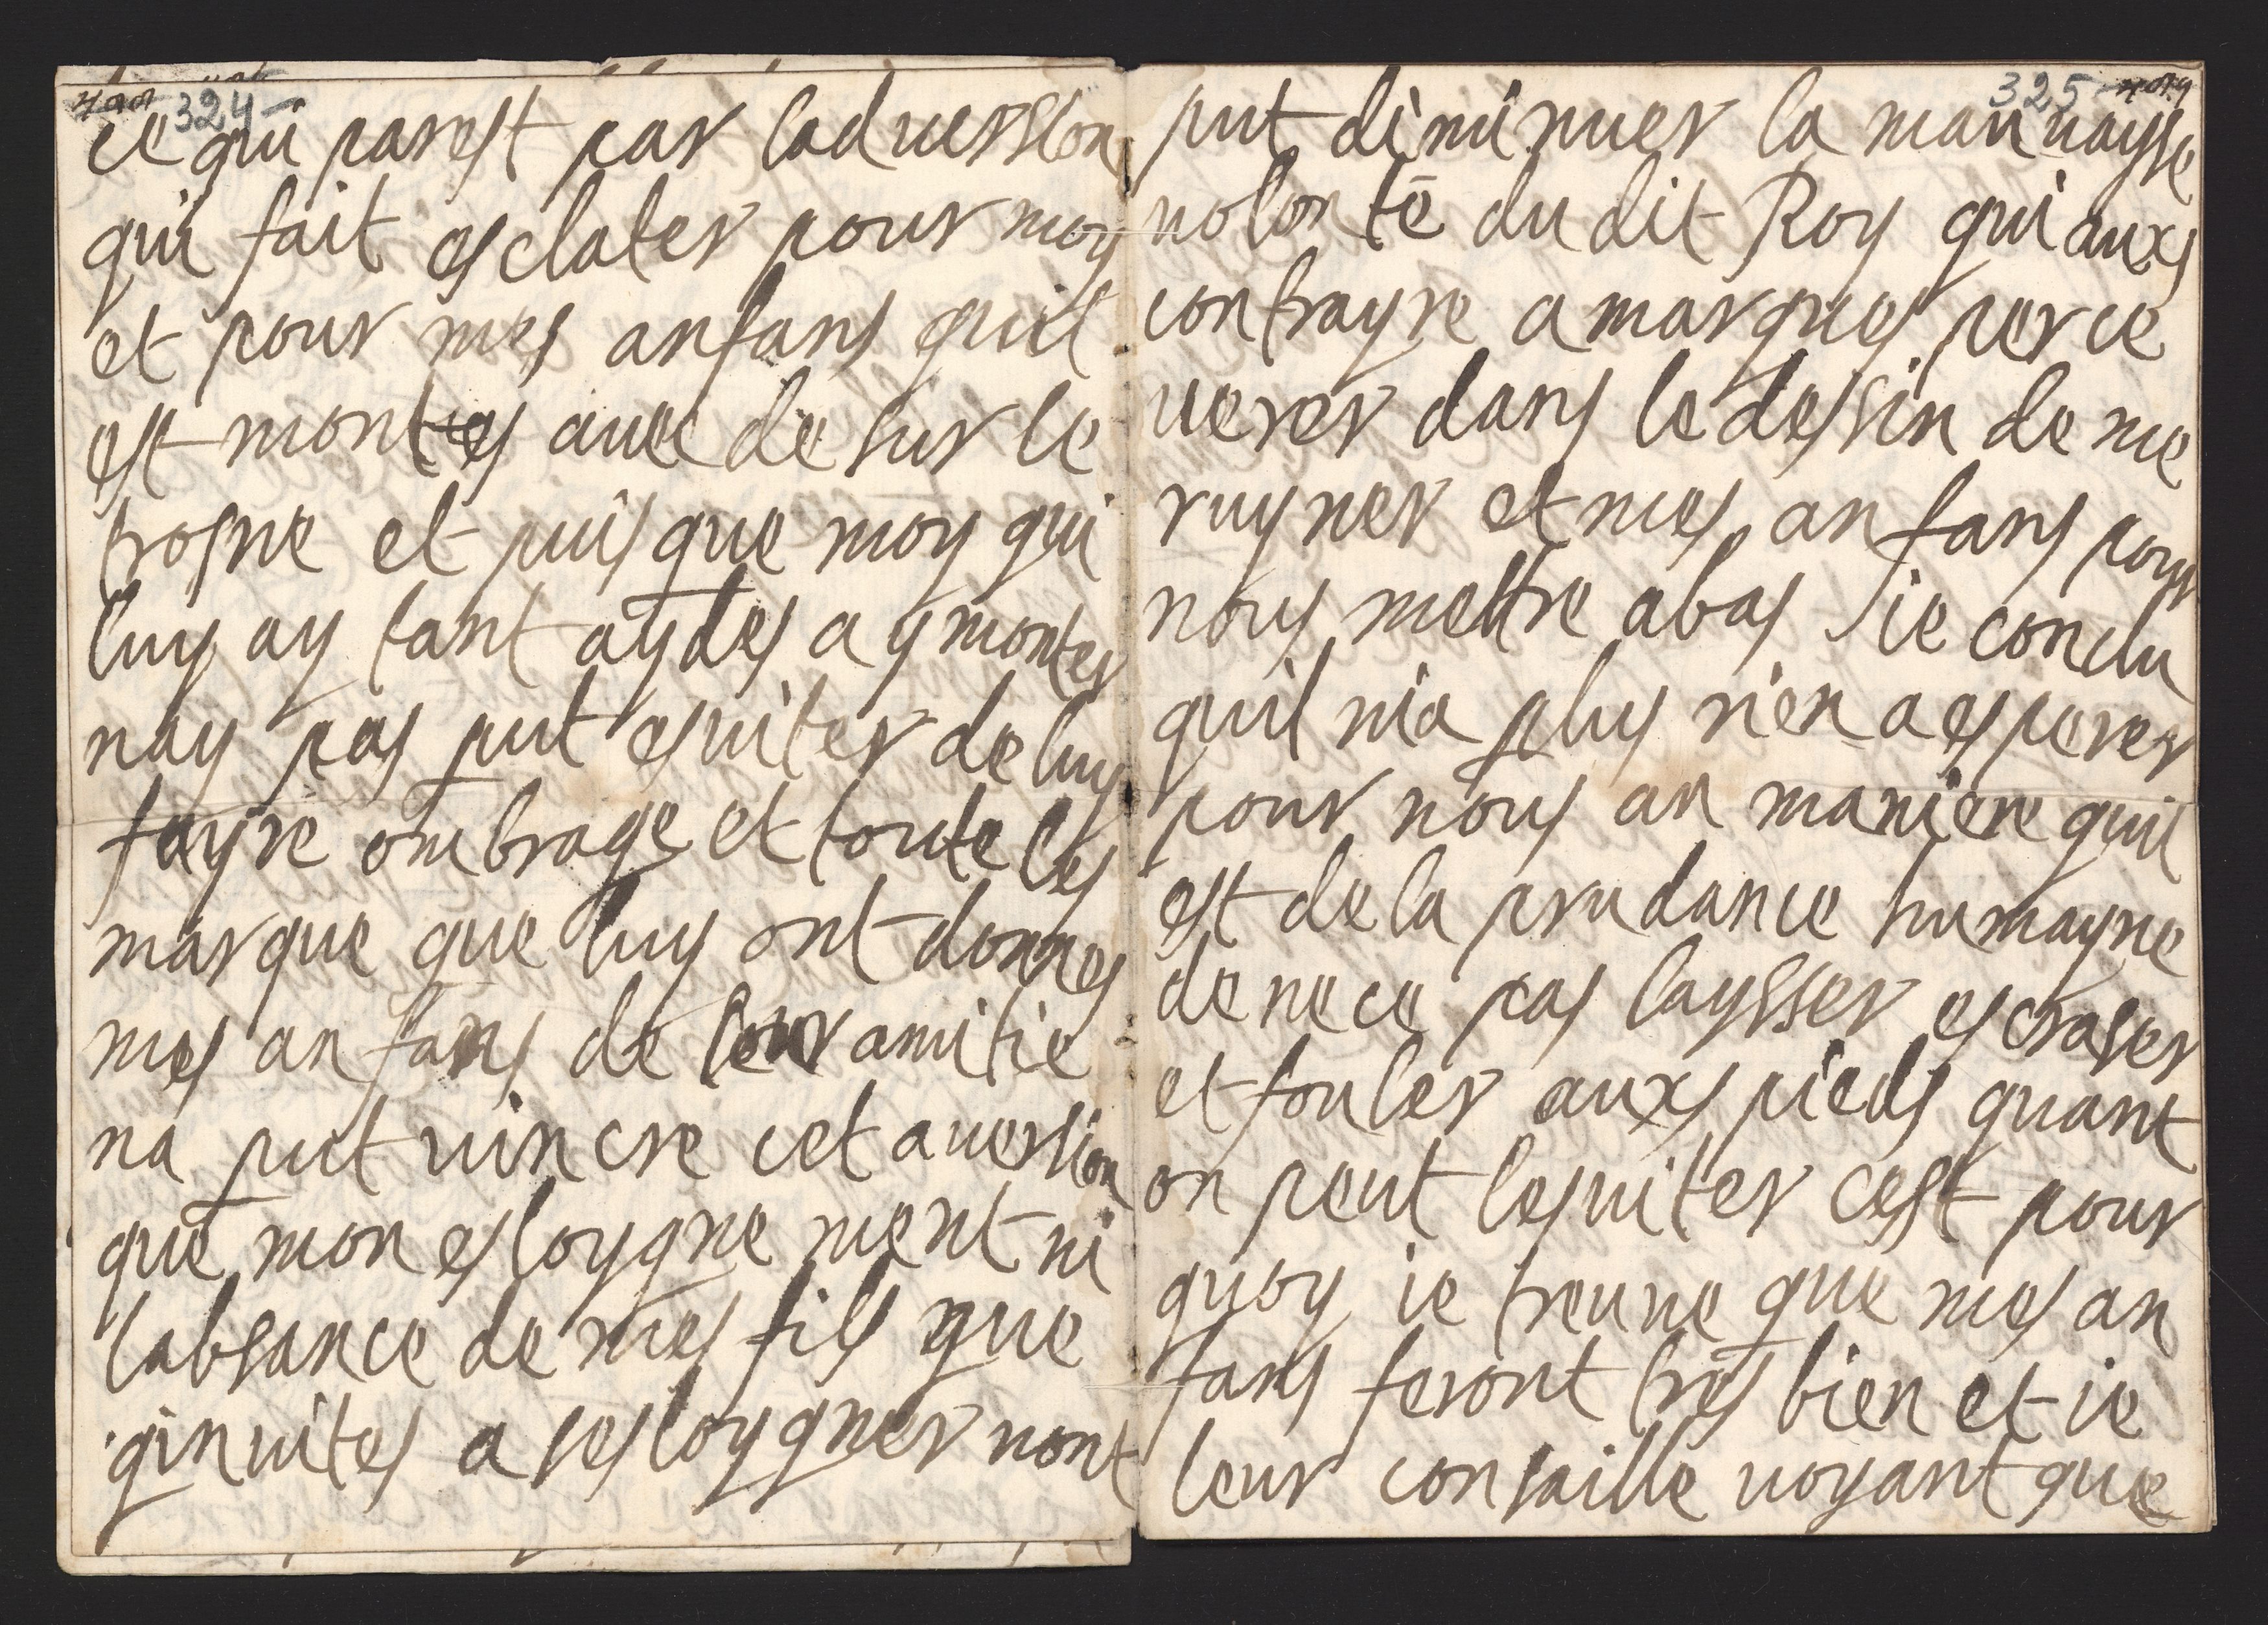 324
ce qui parest par laduerssion
qui fait esclater pour moy
et pour mes anfans quil
est montes auec de sur le
trosne et puis que moy qui
luy ay tant aydes a y monter
nay pas put esuiter de luy
fayre ombrage et toute les
marque que luy ont donnes
mes anfans de leur amitie
na put uincre cet auersion
que mon esloygne ment ni
labsance de mes fils que
ginuites a sesloygner nont
325
put diminuer la mauuaysse
uolonte du dit Roy qui auxs
contrayre a marques perce
uerer dans le dessin de me
ruyner et mes anfans pour
nous mettre abas ie conclu
quil nia plus rien a esperer
pour nous an maniere quil
est de la prudance humayne
de ne ce pas laysser escraser
et fouler auxs pieds quant
on peut lesuiter cest pour
quoy ie treuue que mes an
fans feront tres bien et ie
leur consaille uoyant que